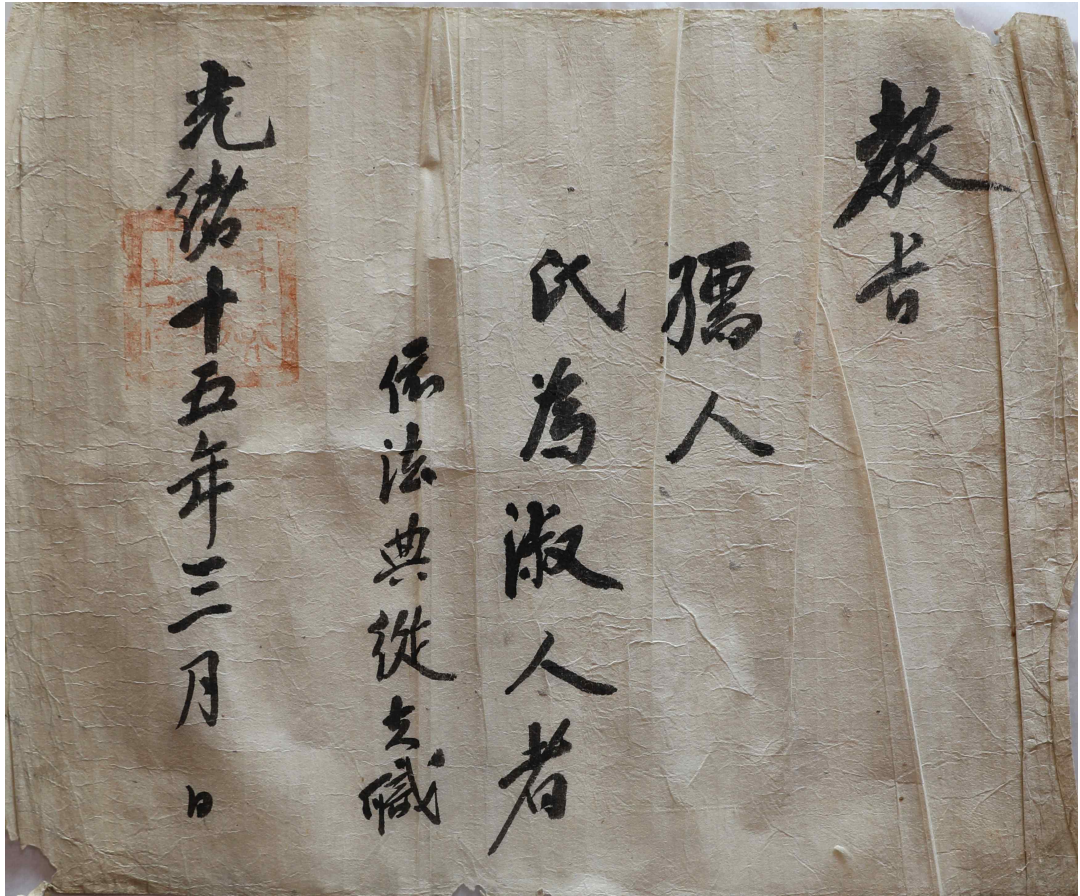 教旨
孺人
氏為淑人者
依法典從夫職
光緒十五年三月 日